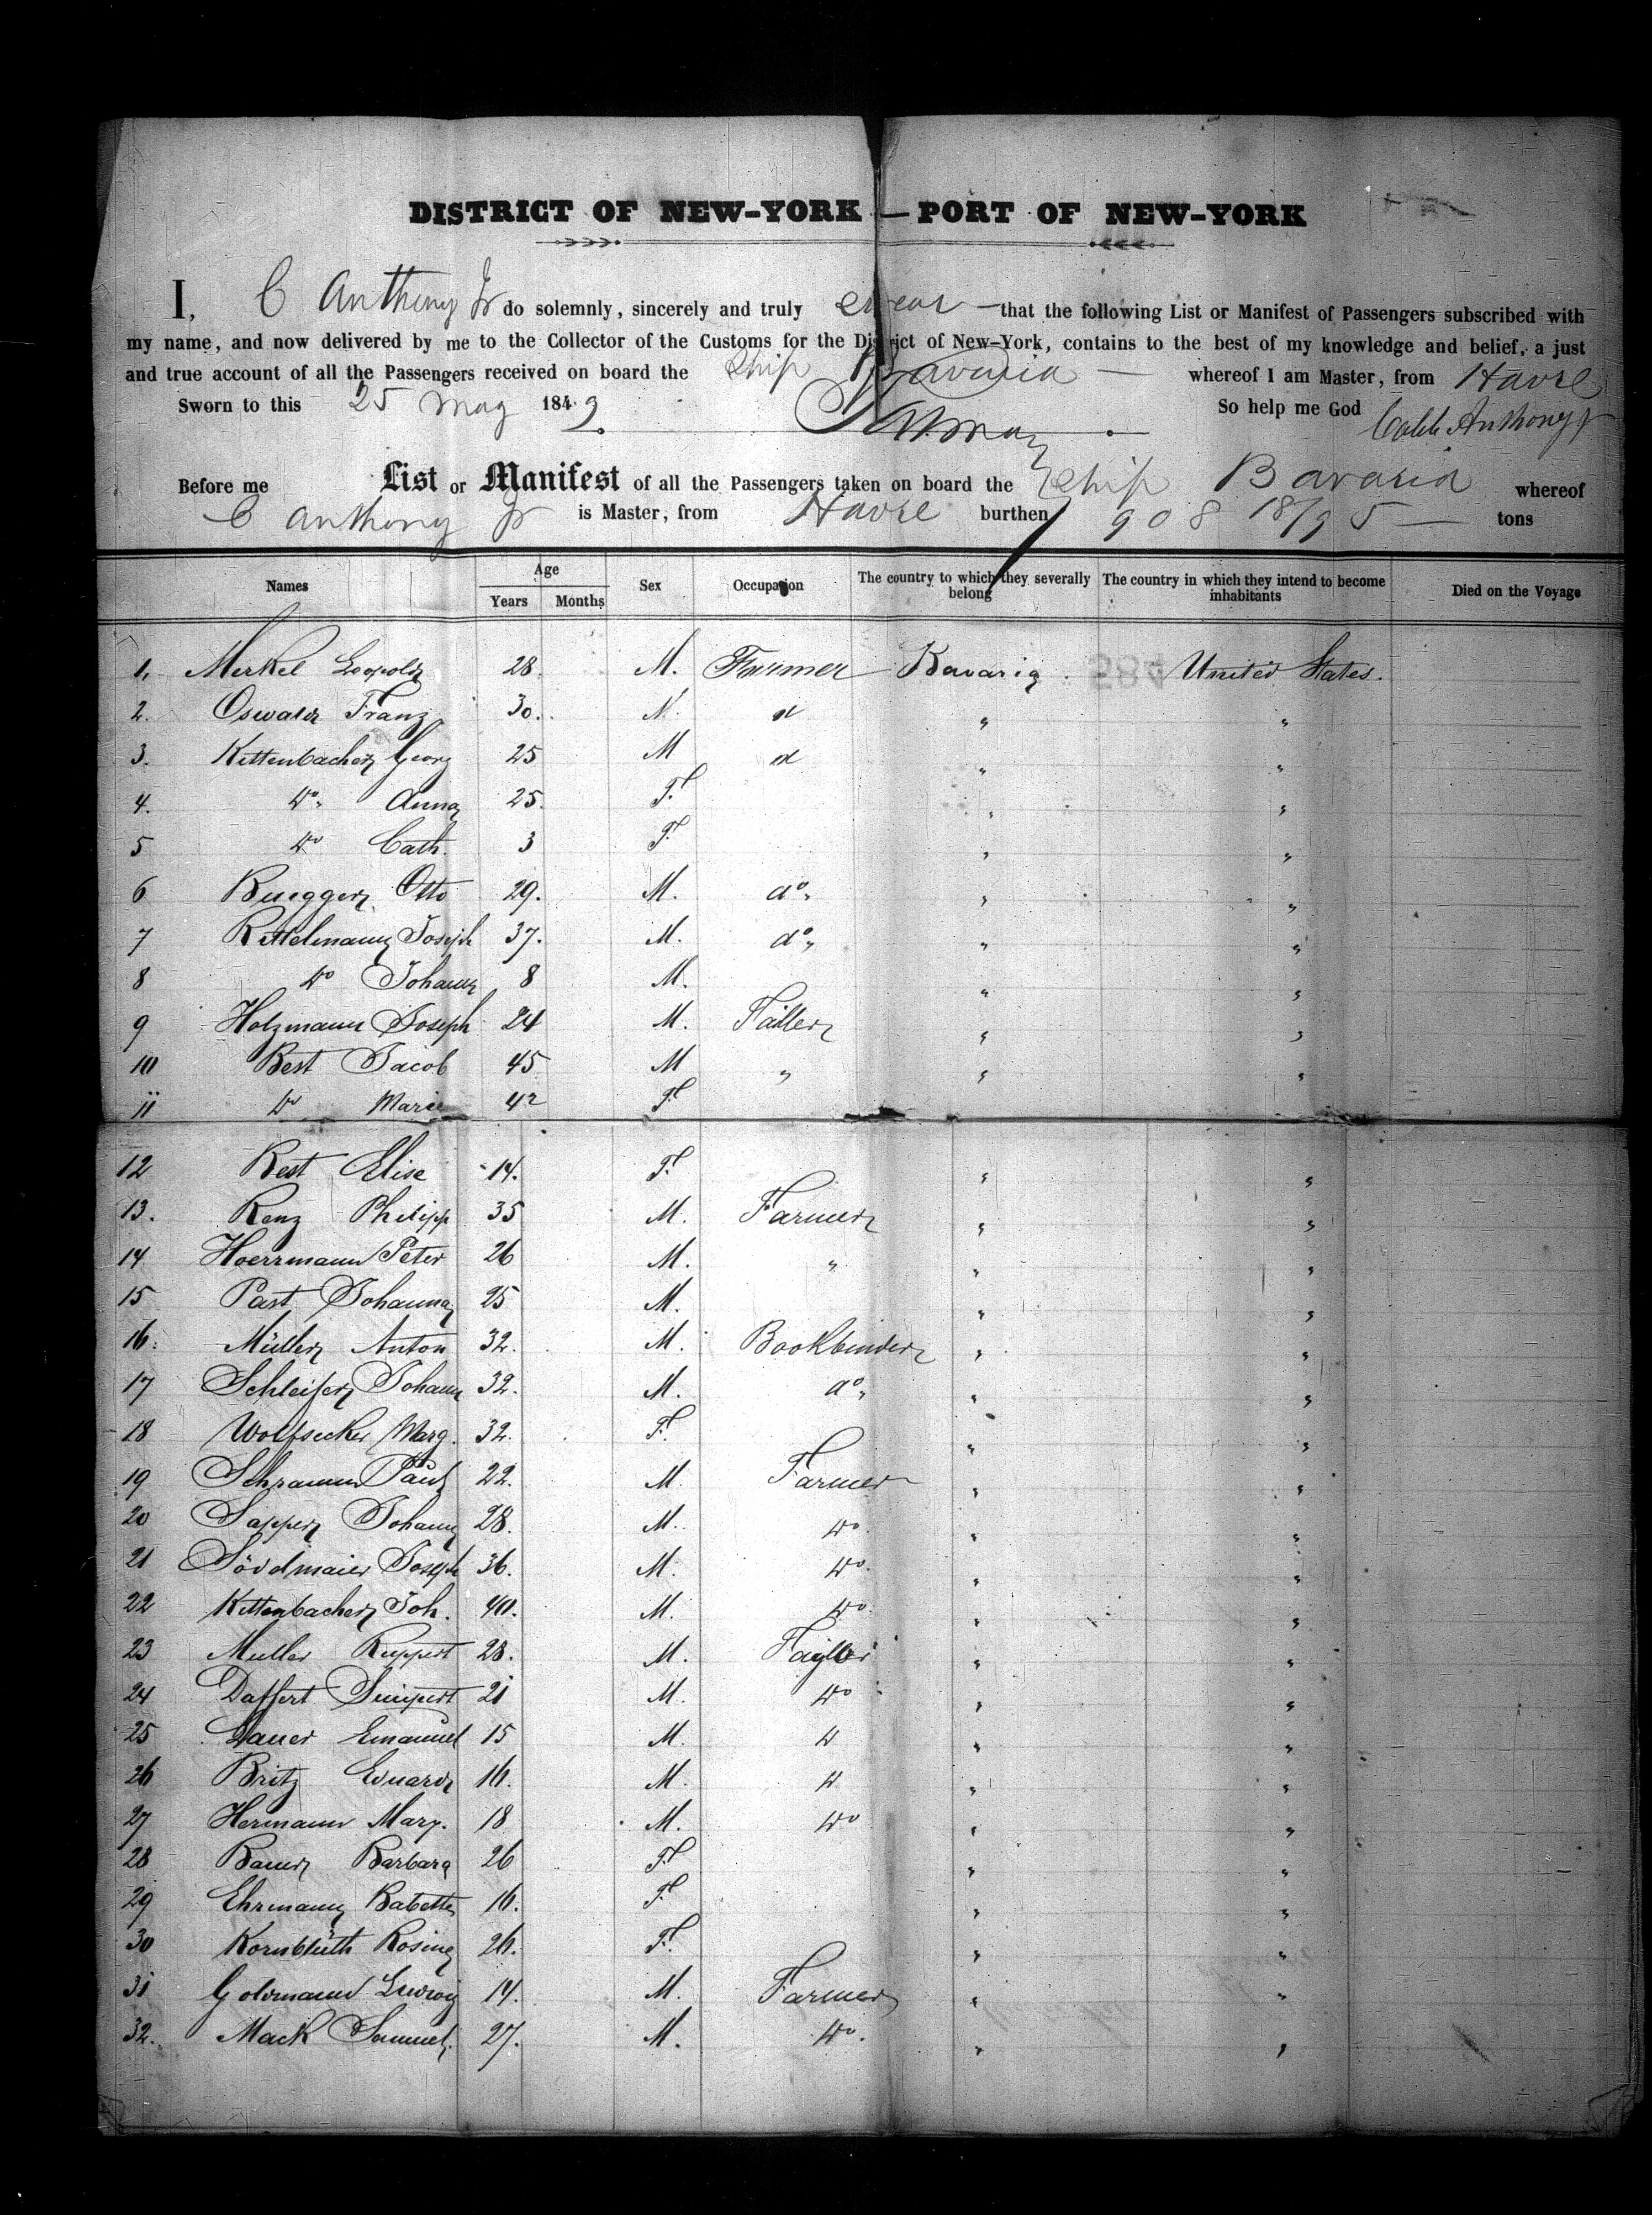 DISTRICT OF NEW-YORK — PORT OF NEW-YORK
I, C Anthony Jr do solemnly, sincerely and truly swear — that the following List or Manifest of Passengers subscribed with
my name, and now delivered by me to the Collector of the Customs for the District of New-York, contains to the best of my knowledge and belief, a just
and true account of all the Passengers received on board the Ship Bavaria — whereof I am Master, from Havre
Sworn to this 25 May 1849 So help me God Caleb Anthony Jr
Before me List or Manifest of all the Passengers taken on board the Ship Bavaria whereof
C Anthony Jr is Master, from Havre burthen 908 18/95 — tons
Names Age Years Months Sex Occupation The country to which they severally belong The country in which they intend to become inhabitants Died on the Voyage
1. Merkel Leopold 28 M. Farmer Bavaria United States.
2. Oswald Franz 30. M. d " "
3. Kittenbacher Georg 25 M d " "
4. do. Anna 25. F. " "
5 do Cath. 3 F. " "
6 Buegger Otto 29. M. do. " "
7 Kettelmann Joseph 37. M. do. " "
8 do Johann 8 M. " "
9 Holzmann Joseph 24 M. Tailler " "
10 Best Jacob 45 M " " "
11 do Marie 42 F.
12 Best Elise 14. F. " "
13. Renz Philipp 35 M. Farmer " "
14 Hoerrmann Peter 26 M. " " "
15 Past Johanna 25 M. " "
16. Müller Anton 32. M. Bookbinder " "
17 Schleifer Johann 32. M. do. " "
18 Wolfsecker Marg. 32. F. " "
19 Schramm Paul 22. M. Farmer " "
20 Sapper Johann 28. M. do. " "
21 Södlmaier Joseph 36. M. do. " "
22 Kittenbacher Joh. 40. M. do. " "
23 Muller Ruppert 28. M. Tayller " "
24 Daffert Simpert 21 M. do " "
25 Lauer Emanuel 15 M. d " "
26 Britz Eduard 16. M. d " "
27 Hermann Marx. 18 M. do " "
28 Bauer Barbara 26 F. " "
29 Ehrmann Babette 16. F. " "
30 Kornblüth Rosina 26. F. " "
31 Goldmann Ludwig 14. M. Farmer " "
32. Mack Samuel. 27. M. do. " "